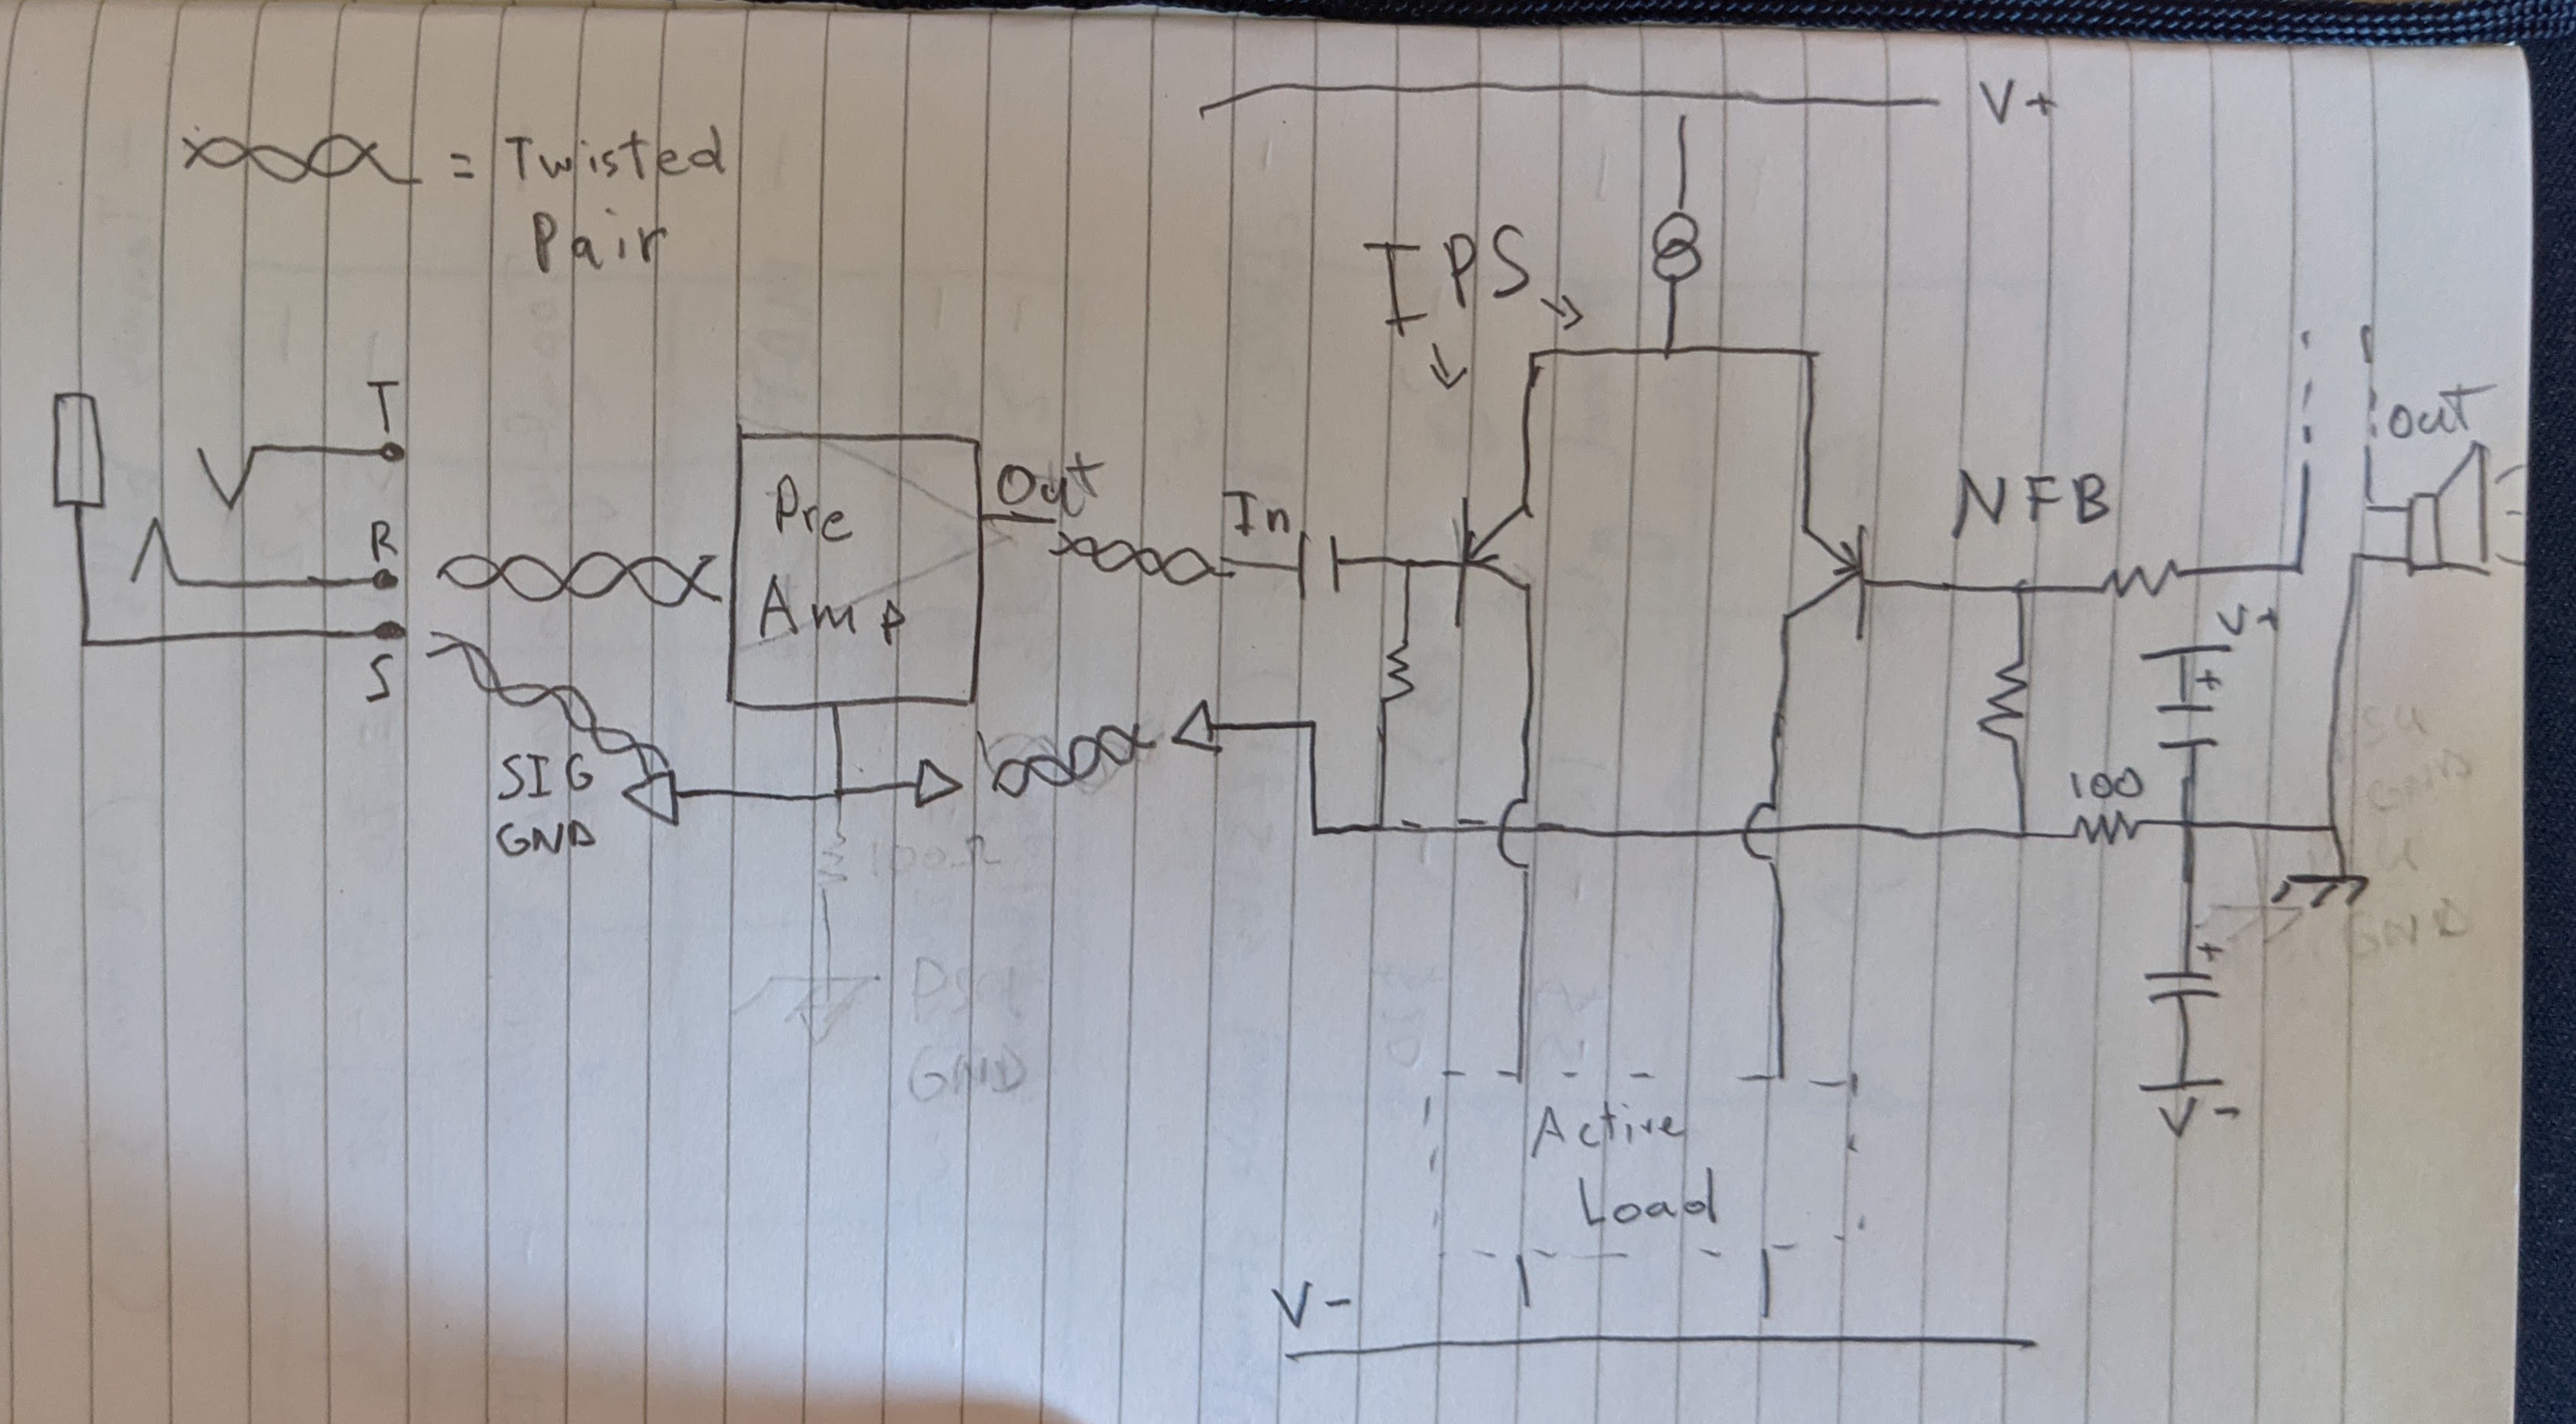 V+
= Twisted
Pair
IPS
T
out
Out
Pre
Amp
In
NFB
R
V+
+
S
SIG
GND
100
100Ω
GND
GND
+
V-
Active
Load
V-